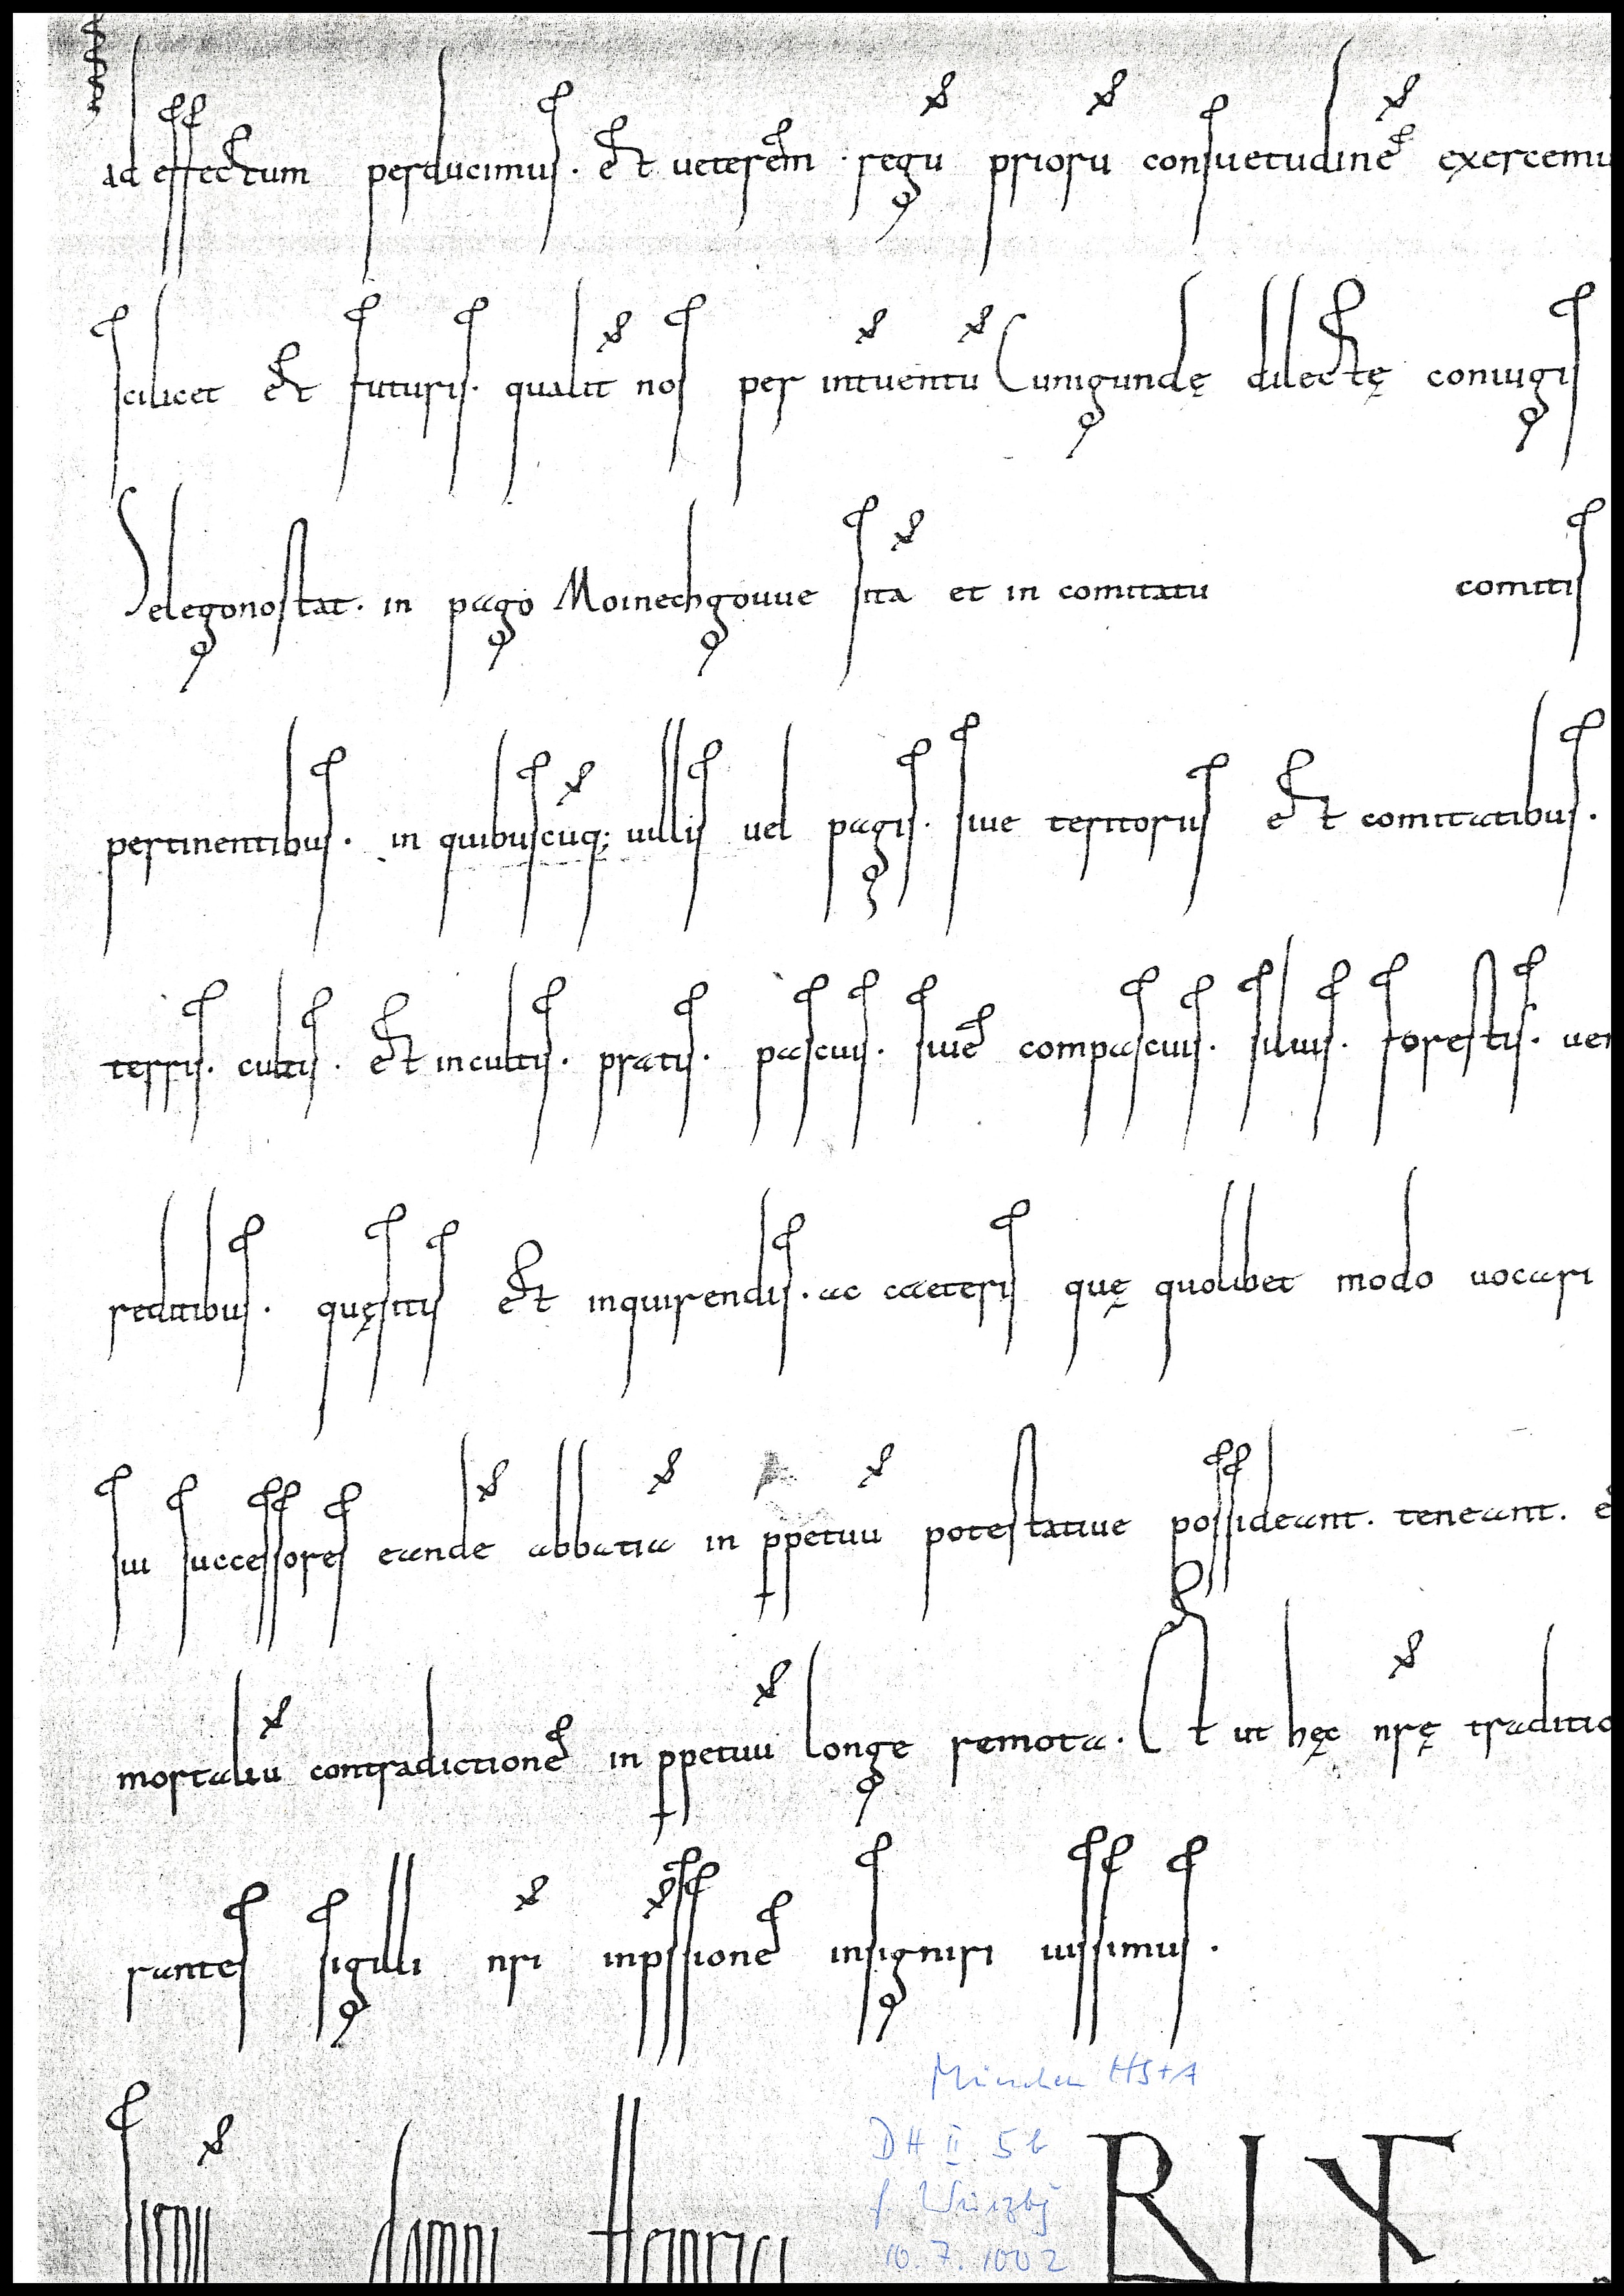 ad effectum perducimus. et veterem regū priorū consuetudine exercemu
scilicet et futuris. qualit̄ nos per int̄uentū Cunigundę dilectę coniugis
Selegonostat. in pago Moinechgouue sitā et in comitatu comitis
pertinentibus. in quibuscūq; uillis uel pagis. siue teritoriis et comitatibus.
terris. cultis. et incultis. pratis. pascuis. siue compascuis. siluis. forestis. uen
reditibus. quęsitis et inquirendis. ac caeteris quę quolibet modo uocari
sui successores eandē abbatiā in ꝑpetuū potestatiue possideant. teneant. e
mortaliū contradictione in ꝑpetuū longe remota. Et ut hęc nr̄ę traditio
rantes sigilli nr̄i inp̄ssione insigniri iussimus.
Signū domni Heinrici RIX
München HStA
DH II 5b
f. Würzbg
10. 7. 1002